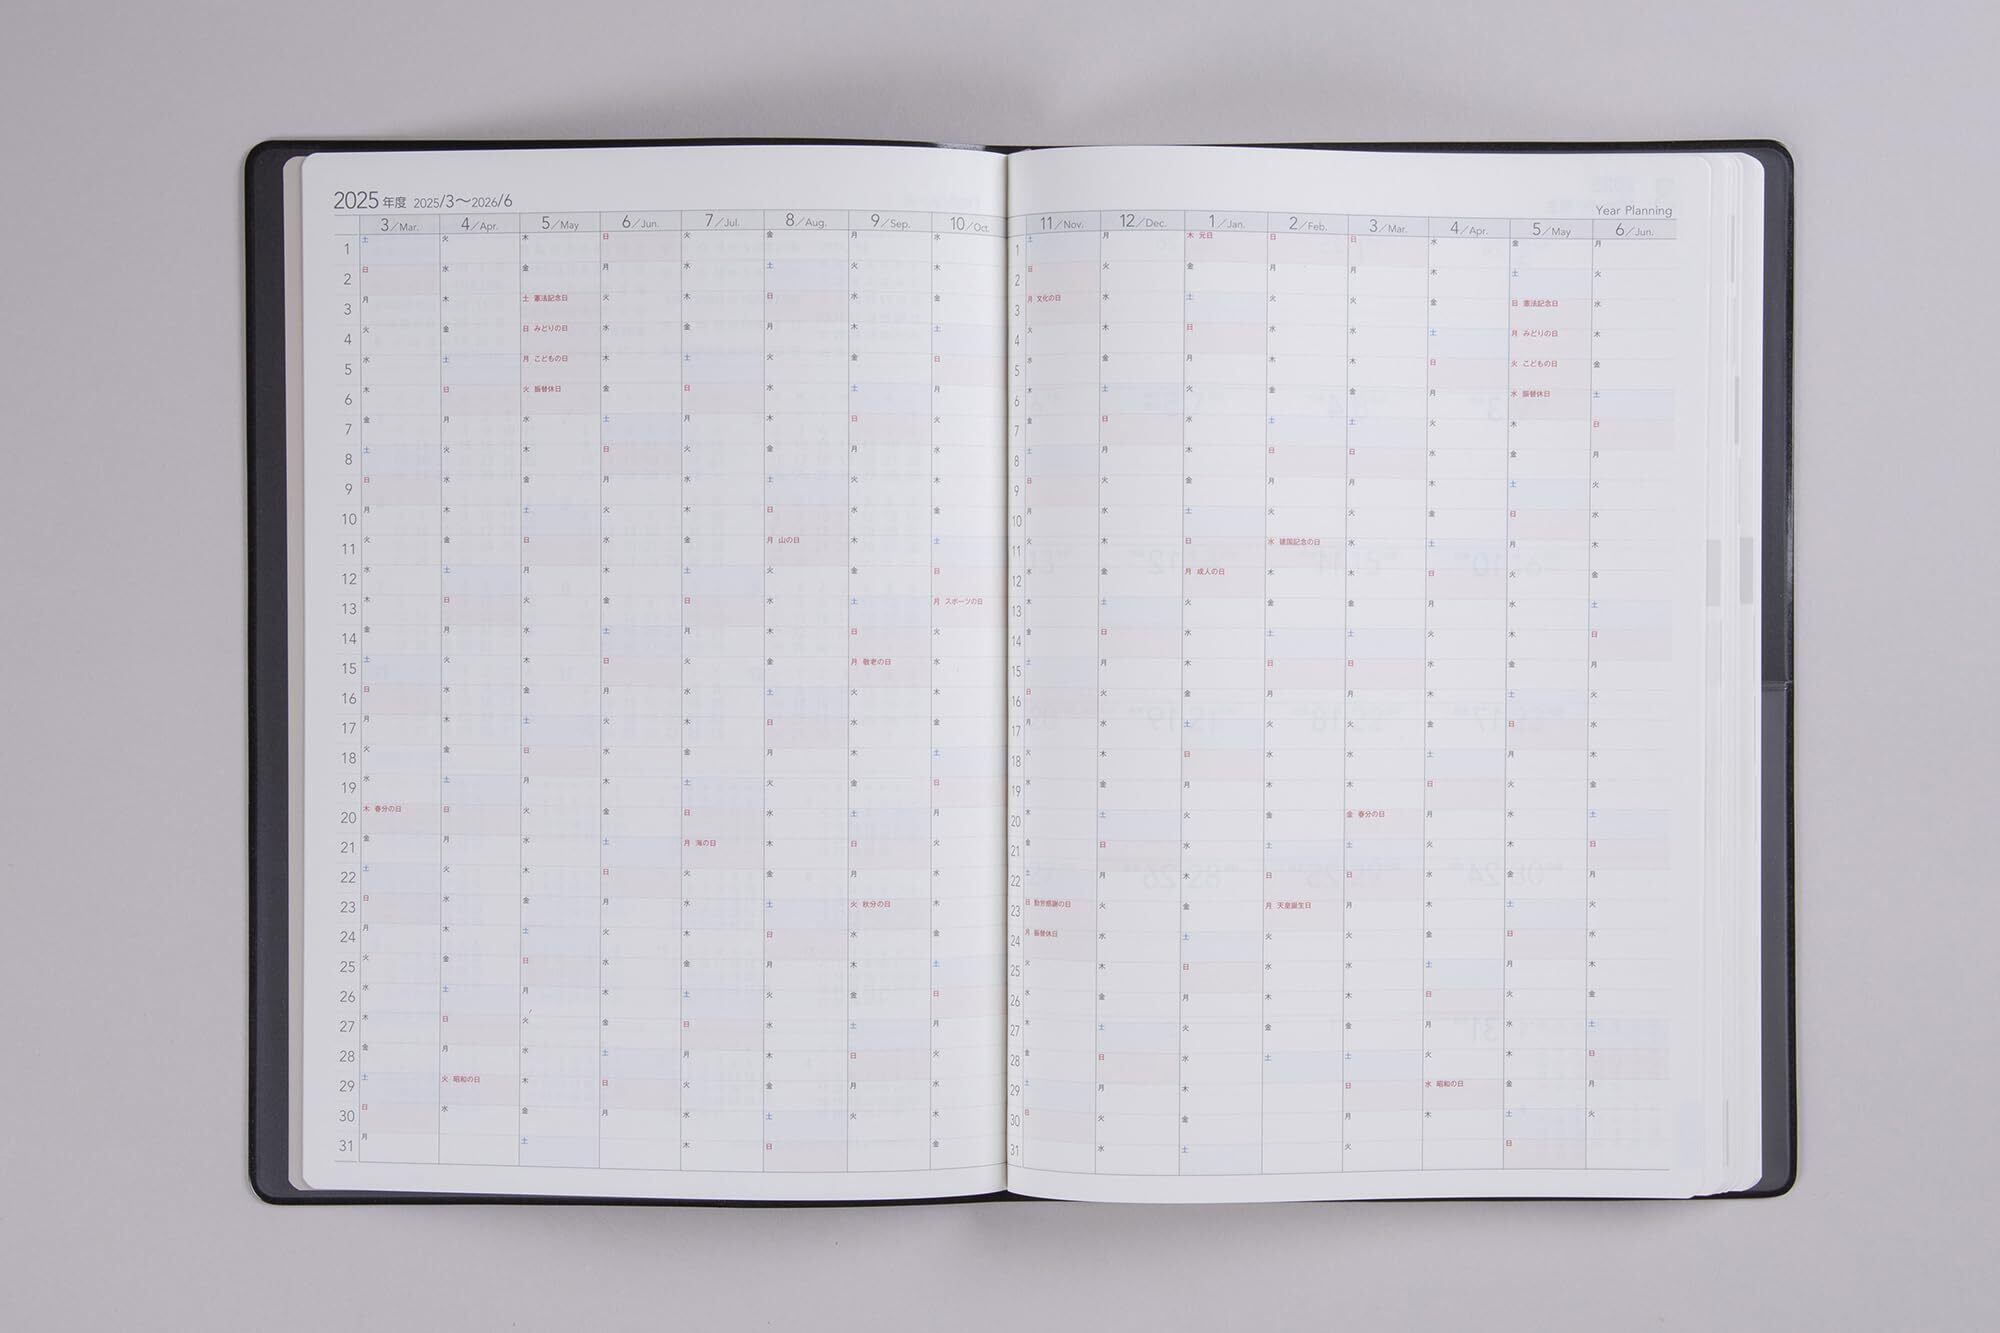 2025年度 2025/3〜2026/6
3/Mar. 4/Apr. 5/May 6/Jun. 7/Jul. 8/Aug. 9/Sep. 10/Oct.
1 土 火 木 日 火 金 月 水
2 日 水 金 月 水 土 火 木
3 月 木 土 憲法記念日 火 木 日 水 金
4 火 金 日 みどりの日 水 金 月 木 土
5 水 土 月 こどもの日 木 土 火 金 日
6 木 日 火 振替休日 金 日 水 土 月
7 金 月 水 土 月 木 日 火
8 土 火 木 日 火 金 月 水
9 日 水 金 月 水 土 火 木
10 月 木 土 火 木 日 水 金
11 火 金 日 水 金 月 山の日 木 土
12 水 土 月 木 土 火 金 日
13 木 日 火 金 日 水 土 月 スポーツの日
14 金 月 水 土 月 木 日 火
15 土 火 木 日 火 金 月 敬老の日 水
16 日 水 金 月 水 土 火 木
17 月 木 土 火 木 日 水 金
18 火 金 日 水 金 月 木 土
19 水 土 月 木 土 火 金 日
20 木 春分の日 日 火 金 日 水 土 月
21 金 月 水 土 月 海の日 木 日 火
22 土 火 木 日 火 金 月 水
23 日 水 金 月 水 土 火 秋分の日 木
24 月 木 土 火 木 日 水 金
25 火 金 日 水 金 月 木 土
26 水 土 月 木 土 火 金 日
27 木 日 火 金 日 水 土 月
28 金 月 水 土 月 木 日 火
29 土 火 昭和の日 木 日 火 金 月 水
30 日 水 金 月 水 土 火 木
31 月 土 木 日 金
Year Planning
11/Nov. 12/Dec. 1/Jan. 2/Feb. 3/Mar. 4/Apr. 5/May 6/Jun.
1 土 月 木 元日 日 日 水 金 月
2 日 火 金 月 月 木 土 火
3 月 文化の日 水 土 火 火 金 日 憲法記念日 水
4 火 木 日 水 水 土 月 みどりの日 木
5 水 金 月 木 木 日 火 こどもの日 金
6 木 土 火 金 金 月 水 振替休日 土
7 金 日 水 土 土 火 木 日
8 土 月 木 日 日 水 金 月
9 日 火 金 月 月 木 土 火
10 月 水 土 火 火 金 日 水
11 火 木 日 水 建国記念の日 水 土 月 木
12 水 金 月 成人の日 木 木 日 火 金
13 木 土 火 金 金 月 水 土
14 金 日 水 土 土 火 木 日
15 土 月 木 日 日 水 金 月
16 日 火 金 月 月 木 土 火
17 月 水 土 火 火 金 日 水
18 火 木 日 水 水 土 月 木
19 水 金 月 木 木 日 火 金
20 木 土 火 金 金 春分の日 月 水 土
21 金 日 水 土 土 火 木 日
22 土 月 木 日 日 水 金 月
23 日 勤労感謝の日 火 金 月 天皇誕生日 月 木 土 火
24 月 振替休日 水 土 火 火 金 日 水
25 火 木 日 水 水 土 月 木
26 水 金 月 木 木 日 火 金
27 木 土 火 金 金 月 水 土
28 金 日 水 土 土 火 木 日
29 土 月 木 日 水 昭和の日 金 月
30 日 火 金 月 木 土 火
31 水 土 火 日